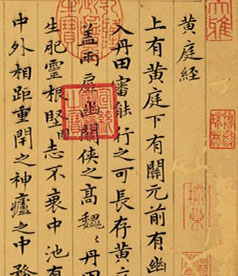 黃庭經
上有黃庭下有關元前有幽
入丹田審能行之可長存黃
蓋兩扉幽闕俠之高魏〻丹田
生肥靈根堅志不衰中池有
中外相距重閉之神廬之中務